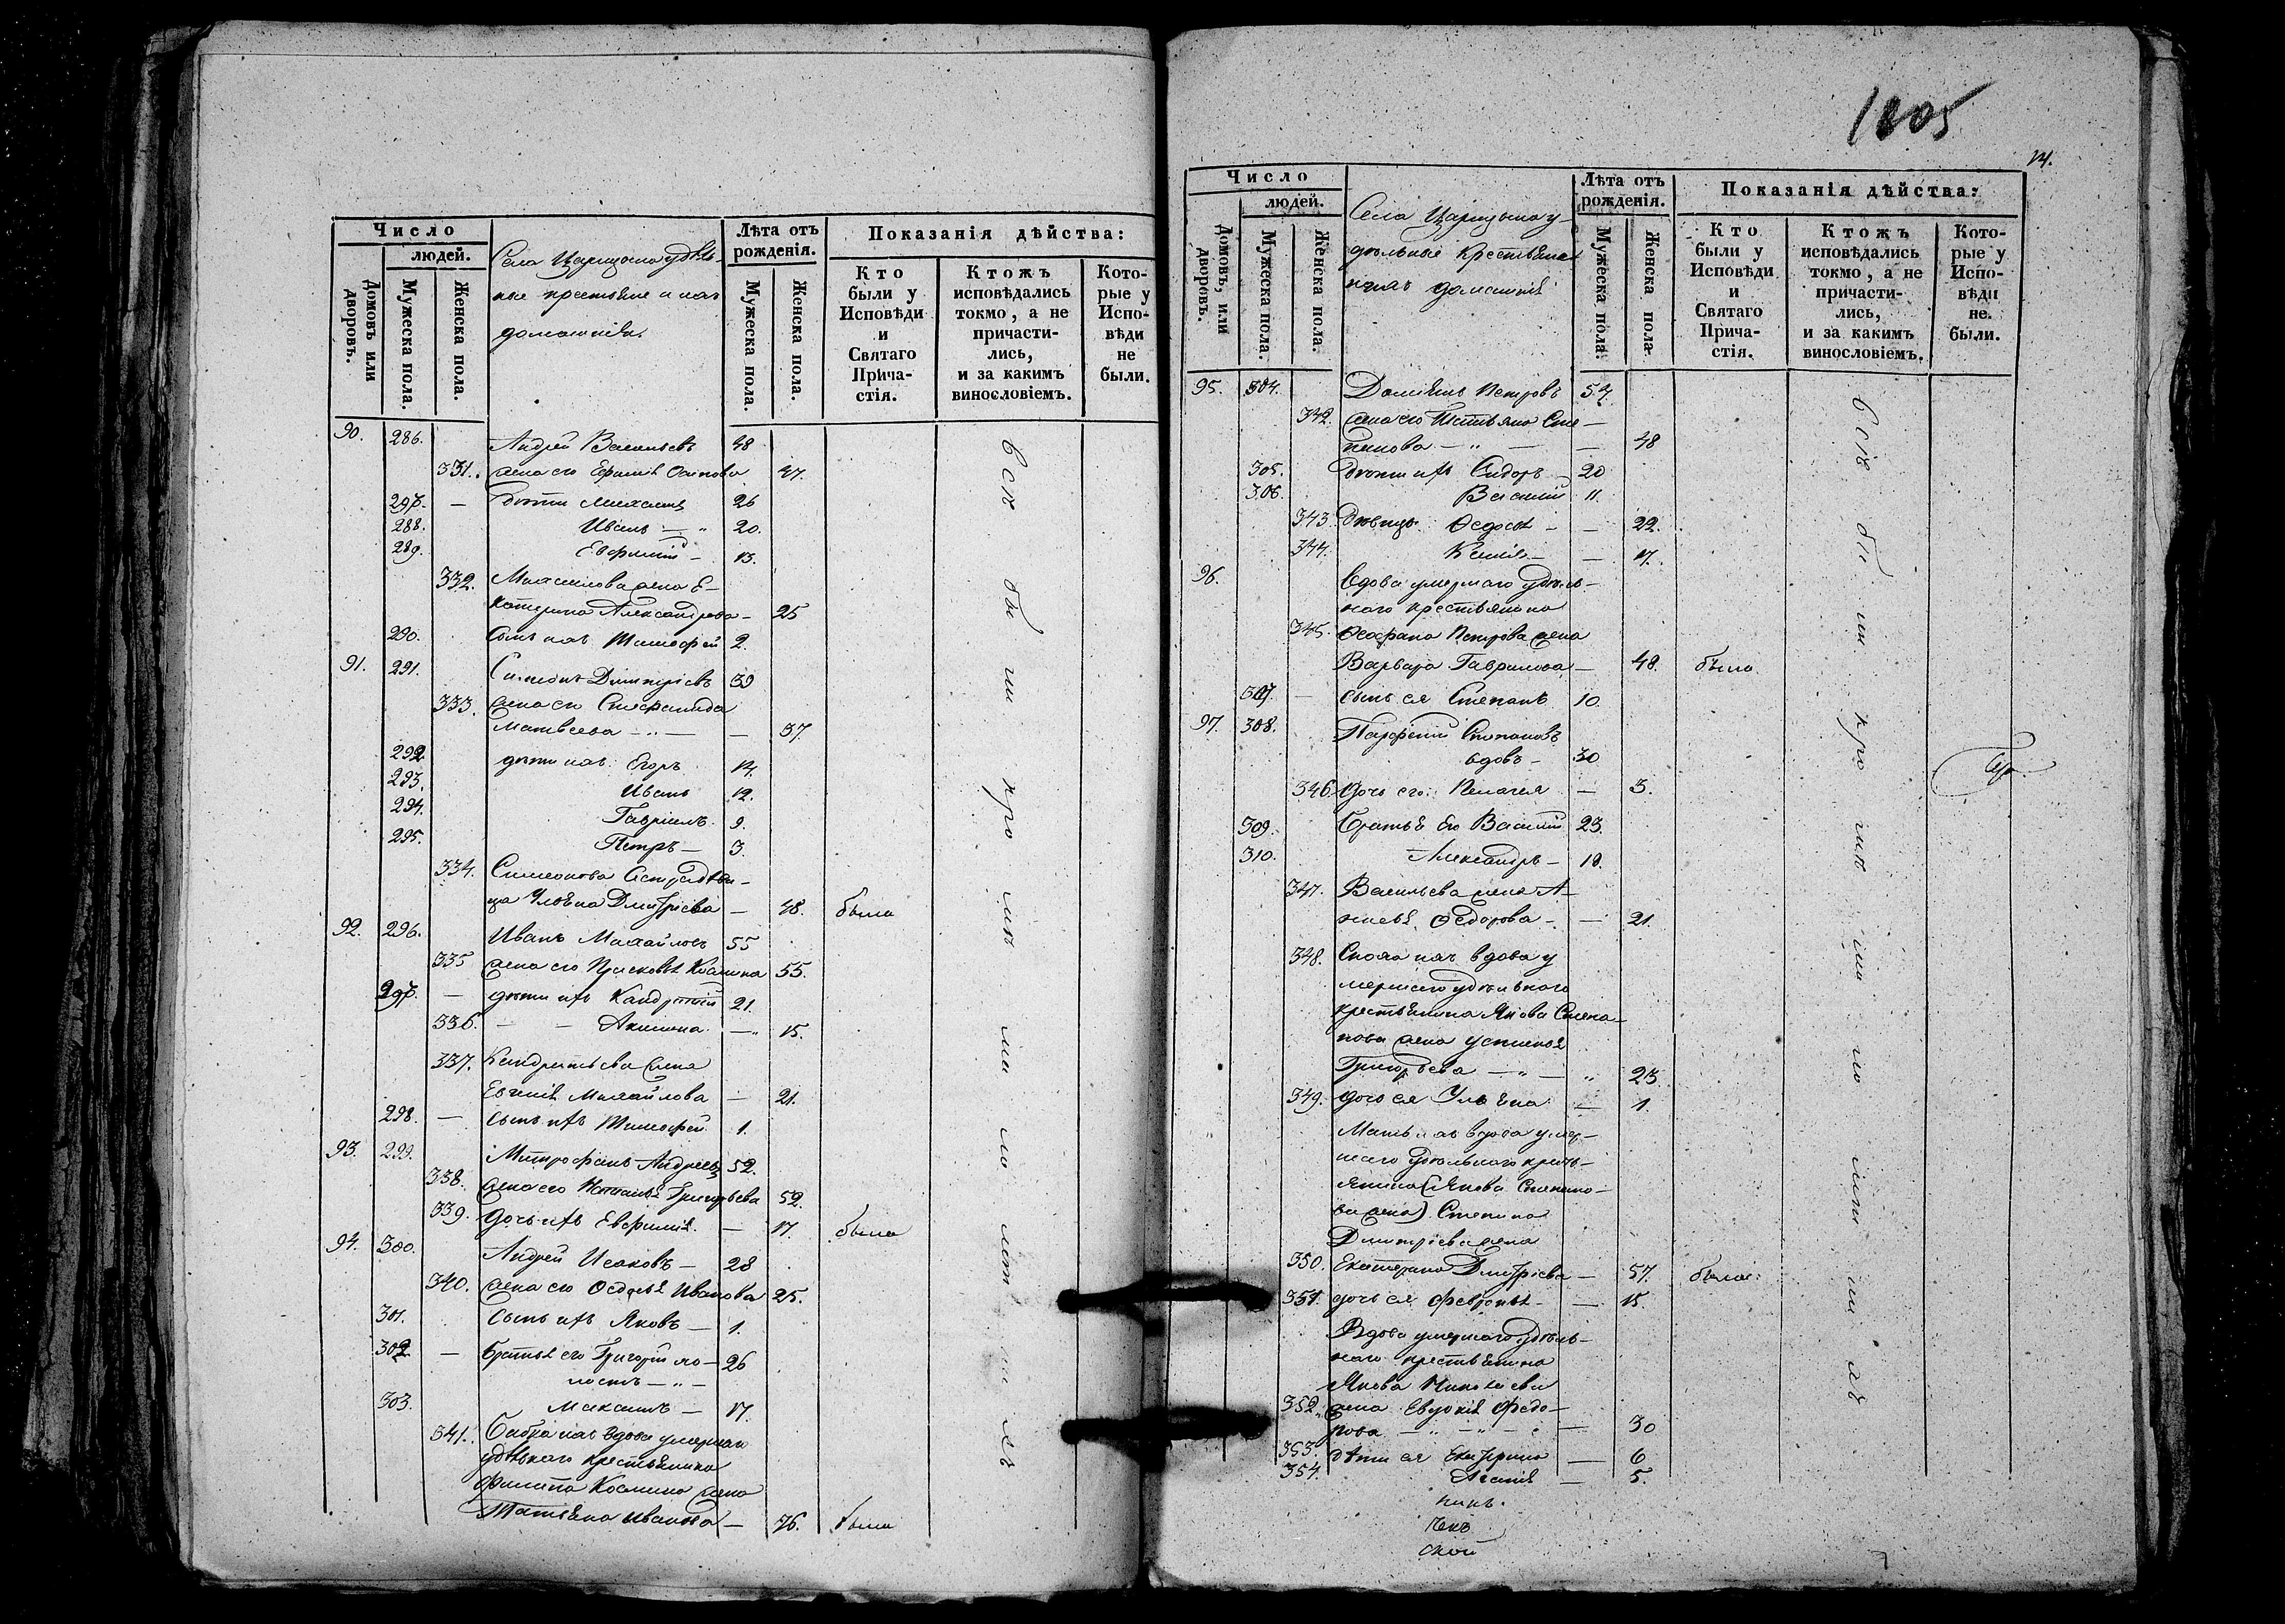 Число
людей.
Домовъ или дворовъ.
Мужеска пола.
Женска пола.
Села Царицына удѣль-
ные крестьяне и ихъ
домашніе
Лѣта отъ рожденія.
Мужеска пола.
Женска пола.
Показанія дѣйства:
Кто были у Исповѣди и Святаго Прича-стія.
Ктожъ исповѣдались токмо, а не причасти-лись, и за какимъ винословіемъ.
Кото-рые у Испо-вѣди не были.
90. 286. Андрей Васильевъ 48
331. жена его Ефимія Осипова 47.
287. — дѣти Михаилъ 26
288. Иванъ — 20.
289. Евфимій — 13.
332. Михаилова жена Е-
катерина Александрова — 25
290. сынъ ихъ Тимофей 2.
91. 291. Симеонъ Димитріевъ 39
333. жена его Стефанида
Матвеева — — 37.
292 дѣти ихъ: Егоръ 14.
293. Иванъ 12.
294. Гавріилъ 9.
295. Петръ — 3.
334. Симеонова сестра дѣви-
ца Ульяна Димитріева — 48. была
92. 296. Иванъ Михайловъ 55
335 жена его Прасковья Космина 55.
297. — дѣти ихъ Кандратій 21.
336. — — Акилина — 15.
337. Кандратьева жена
Евгенія Михайлова — 21.
298. — сынъ ихъ Тимофей 1.
93. 299. Митрофанъ Андреевъ 52.
338. жена его Наталья Григорьева 52.
339. дочь ихъ Евфимія — 17. была
94. 300. Андрей Исаковъ — 28
340. жена его Федосья Иванова 25.
301. сынъ ихъ Яковъ — 1.
302 — братья его Григорій хо-
лостъ — 26
303. Максимъ — 17.
341. Бабка ихъ вдова умершаго
удѣльнаго крестьянина
Филиппа Космина жена
Татьяна Иванова — 76. была
1805
Число
людей.
Домовъ, или дворовъ.
Мужеска пола.
Женска пола.
Села Царицына у-
дѣльные крестьяне
и ихъ домашніе
Лѣта отъ рожденія.
Мужеска пола
Женска пола
Показанія дѣйства:
Кто были у Исповѣди и Святаго Прича-стія.
Ктожъ исповѣдались токмо, а не причасти-лись, и за какимъ винословіемъ.
Кото-рые у Испо-вѣди не. были.
95. 304. Даміанъ Петровъ 54.
342. жена его Татьяна Сте-
панова — — 48
305. дѣти ихъ Сидоръ 20
306. Василій 11.
343. дѣвицы: Федосья — — 22.
344. Ксенія — — 17.
96. вдова умершаго удѣль-
наго крестьянина
345. Петрова жена
Варвара Гаврилова — 48. была
307. — сынъ ея Степанъ 10.
97. 308. Парфеній Степановъ
вдовъ — 30
346. дочь его: Пелагея — 3.
309. братья его Василій 23.
310. Александръ — 18.
347. Васильева жена А-
Федорова — — 21.
348. Сноха ихъ вдова у
мершаго удѣльнаго
крестьянина Якова Степа-
нова жена Устинья
Григорьева — 23.
349. дочь ея Ульяна — 1.
Мать ихъ вдова умер-
шаго удѣльнаго кресть-
янина (Якова Степано-
ва жена) Степана
Димитріева жена
350. Екатерина Димитріева — 57. была
351. дочь ея Февронья — — 15.
Вдова умершаго удѣль-
наго крестьянина
Якова
352. жена Евдокія Федо-
рова — 30
353. дѣти ея Екатерина — 6
354. Агафія — 5.